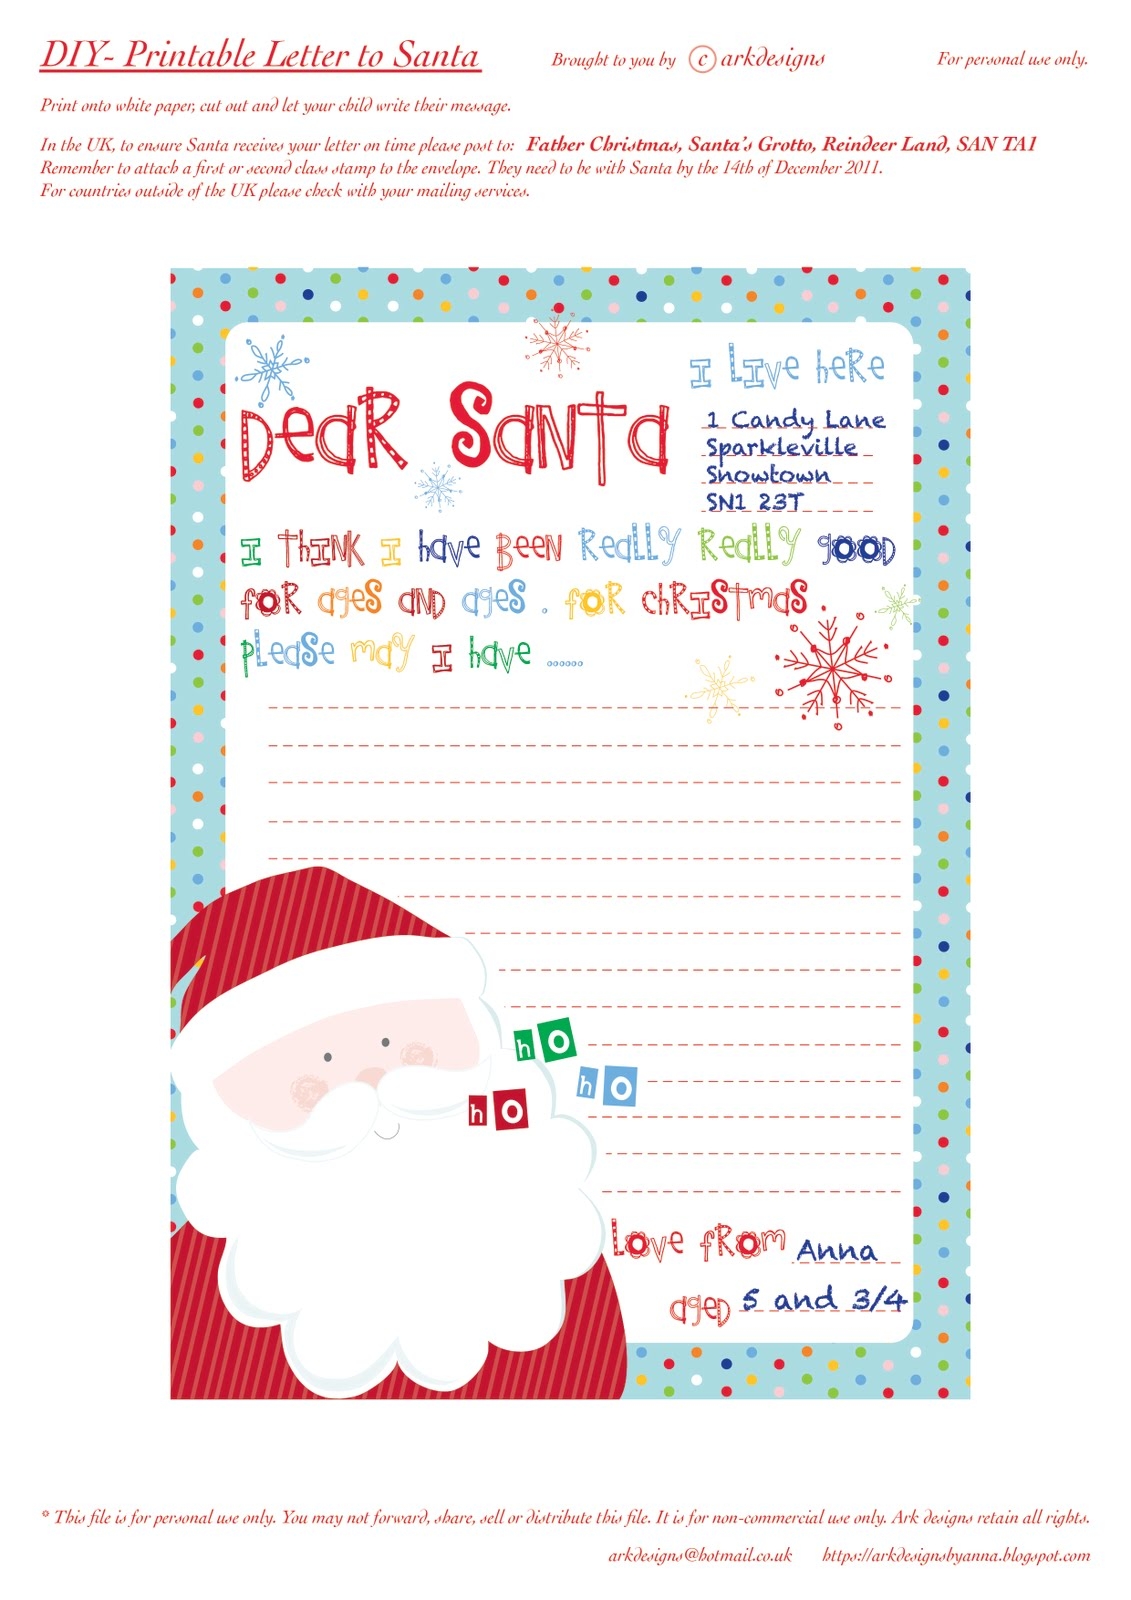 DIY- Printable Letter to Santa
Brought to you by c arkdesigns
For personal use only.
Print onto white paper, cut out and let your child write their message.
In the UK, to ensure Santa receives your letter on time please post to: Father Christmas, Santa's Grotto, Reindeer Land, SAN TA1
Remember to attach a first or second class stamp to the envelope. They need to be with Santa by the 14th of December 2011.
For countries outside of the UK please check with your mailing services.
I LIve heRe
DeaR SaNTa
1 Candy Lane
Sparkleville
Snowtown
SN1 23T
I ThINK I have BeeN ReallY ReallY gOOD
foR ageS aND ageS . foR chRISTmaS
pleaSe maY I have ......
hO
hO
hO
Love fRom Anna
ageD 5 and 3/4
* This file is for personal use only. You may not forward, share, sell or distribute this file. It is for non-commercial use only. Ark designs retain all rights.
arkdesigns@hotmail.co.uk https://arkdesignsbyanna.blogspot.com